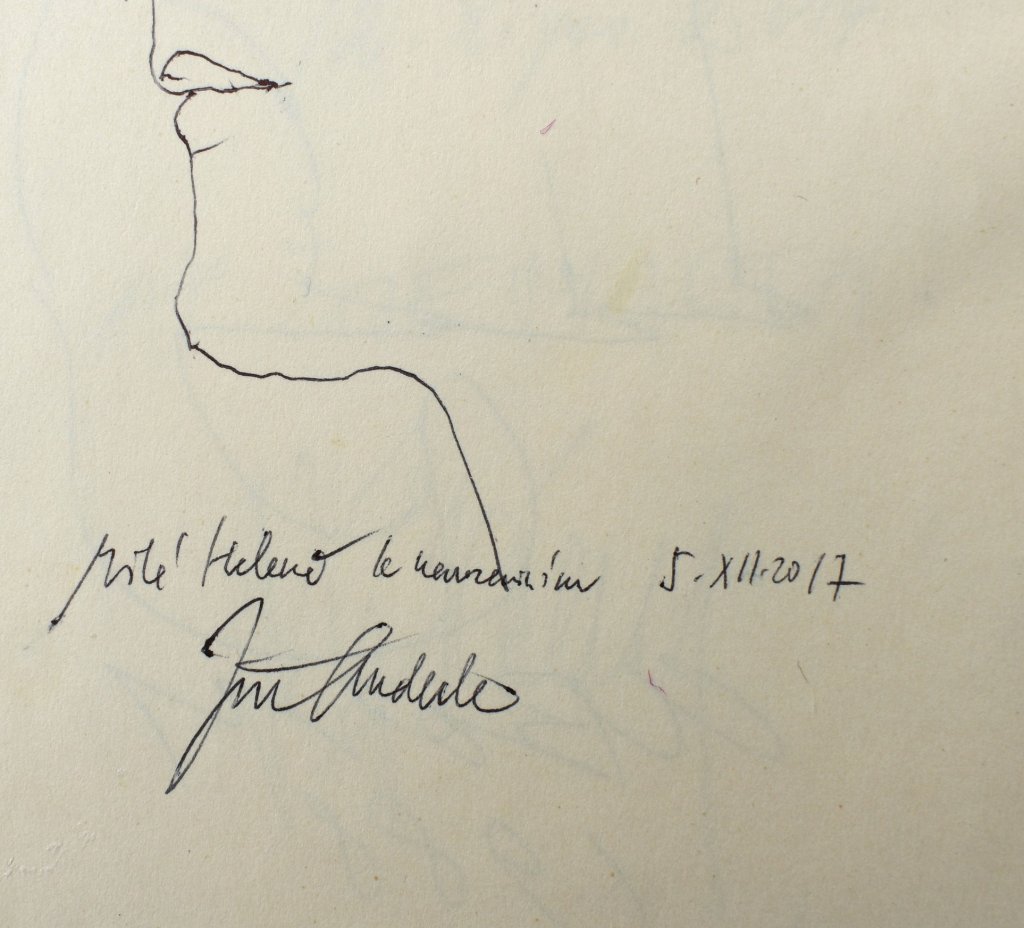 Milé Heleně k narozeninám 5.XII.2017
Jiří Anderle